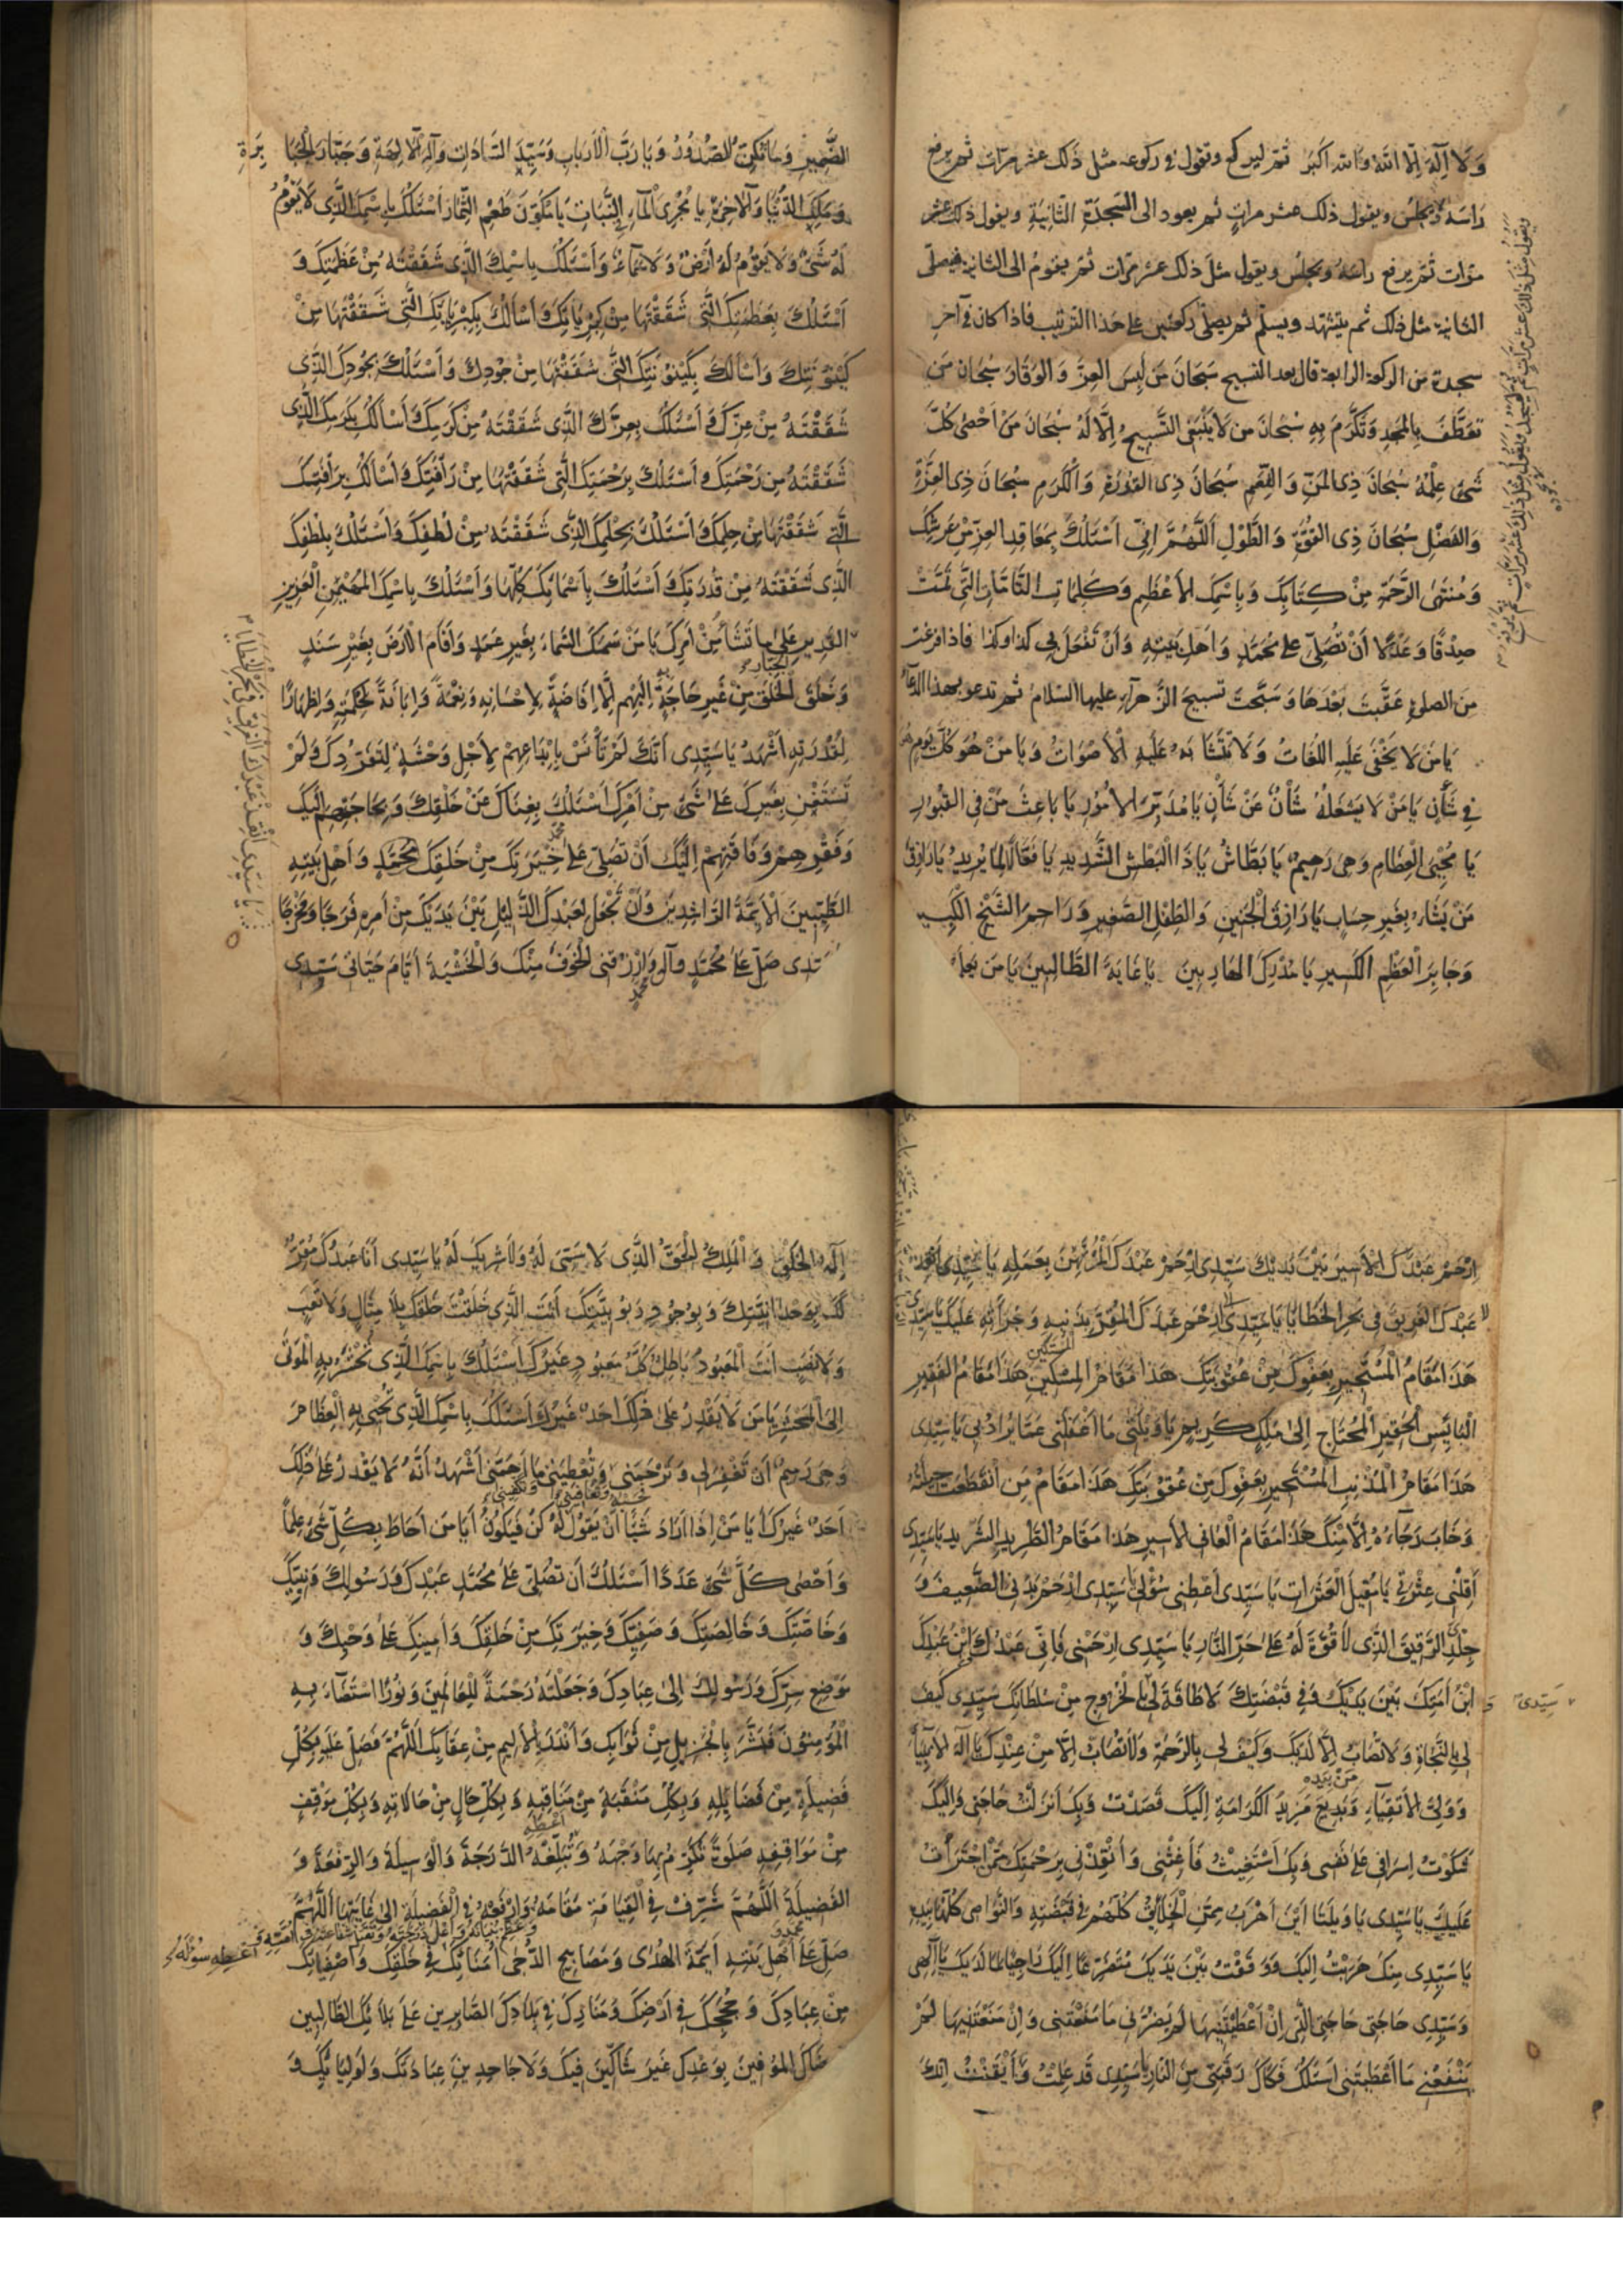 وَلَا اِلٰهَ اِلَّا اللهُ وَاللهُ اَكبَرُ ثمّ ليركع وتقول فى ركوعه مثل ذلك عشر مرّات ثم يرفع
رَاسَهُ ويجلِسُ ويقول ذلك عشر مراتٍ ثم يعود الى السَّجدَةِ الثَّانِيَةِ ويقول ذلك عشر
مرّات ثمّ يرفع راسَهُ ويجلس ويقول مثلَ ذلك عشر مرّات ثمّ يقومُ الى الثانية فيصلّى
الثانية مثل ذلك ثم يتشهّد ويسلّم ثم يصلّى ركعتين على هذا الترتيب فاذا كان فى آخرِ
سجدة من الركعة الرابعة قال بعد التسبيح سُبحَانَ مَن لَبِسَ العِزَّ وَالوَقَارَ سُبحَانَ مَن
تعَطَّفَ بِالمَجدِ وَتَكَرَّمَ بِهِ سُبْحَانَ من لَا يَنْبَغِى التَّسبِيحُ اِلَّا لَهُ سُبْحَانَ مَنْ اَحْصٰى كُلَّ
شَىْءٍ عِلْمُهُ سُبْحَانَ ذِى المَنِّ وَالنِّعَمِ سُبحَانَ ذِى القُدْرَةِ وَالْكَرَمِ سُبْحَانَ ذِى العِزَّةِ
وَالفَضْلِ سُبْحَانَ ذِى القُوَّةِ وَالطَّوْلِ اَللّٰهُمَّ اِنّى اَسْئَلُكَ بِمَعَاقِدِ العِزِّ مِنْ عَرشِكَ
وَمُنتَهَى الرَّحْمَةِ مِنْ كِتَابِكَ وَبِاسْمِكَ الاَعْظَمِ وَكَلِمَاتِكَ التَّامَّاتِ الَّتِى تَمَّتْ
صِدْقًا وَعَدْلًا اَنْ تُصَلِّىَ عَلٰى مُحَمَّدٍ وَاَهلِ بَيْتِهِ وَاَنْ تَفْعَلَ بى كذا وكذا فاذا فرغت
مِنَ الصلوةِ عَقَّبتَ بَعْدَهَا وَسَبَّحتَ تسبيحَ الزَّهرآءِ عليها السّلامُ ثم تدعو بهذا الدُّعآءِ
يَا مَن لَا يَخْفٰى عَلَيهِ اللُّغَاتُ وَلَا تَتَشَابَهُ عَلَيهِ الْاَصْوَاتُ وَيَا مَنْ هُوَ كُلَّ يَومٍ هُوَ
فِى شَأْنٍ يَا مَنْ لَا يَشغَلُهُ شَأْنٌ عَنْ شَأْنٍ يَا مُدَبِّرَ الاُمُورِ يَا بَاعِثَ مَنْ فِى القُبُورِ
يَا مُحْيِىَ الْعِظَامِ وَهِىَ رَمِيمٌ يَا بَطَّاشُ يَا ذَا الْبَطْشِ الشَّدِيدِ يَا فَعَّالًا لِمَا يُرِيدُ يَا رَازِقَ
مَنْ يَشَاءُ بِغَيرِ حِسَابٍ يَا رَازِقَ الْجَنِينِ وَالطِّفْلِ الصَّغِيرِ وَرَاحِمَ الشَّيْخِ الْكَبِيرِ
وَجَابِرَ الْعَظْمِ الكَسِيرِ يَا مُدْرِكَ الهَارِبِينَ يَا غَايَةَ الطَّالِبِينَ يَا مَن يعلم
الضَّمِيرَ وَمَا تُكِنُّ الصُّدُورُ وَيَا رَبَّ الْاَربَابِ وَسَيِّدَ السَّادَاتِ وَاِلٰهَ الْاٰلِهَةِ وَجَبَّارَ الْجَبَابِرَةِ
وَمَلِكَ الدُّنْيَا وَالْاٰخِرَةِ يَا مُجْرِىَ الْمَآءِ فِى النَّبَاتِ يَا مُكَوِّنَ طَعْمِ الثِّمَارِ اَسْئَلُكَ بِاسْمِكَ الَّذِى لَا يَقُومُ
لَهُ شَىْءٌ وَلَا يَقُومُ لَهُ اَرْضٌ وَلَا سَمَاءٌ وَاَسْئَلُكَ بِاسْمِكَ الَّذِى شَقَقْتَهُ مِنْ عَظَمَتِكَ وَ
اَسْئَلُكَ بِعَظَمَتِكَ الَّتِى شَقَقْتَهَا مِنْ كِبْرِيَائِكَ وَاَسْأَلُكَ بِكِبْرِيَائِكَ الَّتِى شَقَقْتَهَا مِنْ
كَيْنُونَتِكَ وَاَسْأَلُكَ بِكَيْنُونَتِكَ الَّتِى شَقَقْتَهَا مِنْ جُودِكَ وَاَسْئَلُكَ بِجُودِكَ الَّذِى
شَقَقْتَهُ مِنْ عِزِّكَ وَاَسْئَلُكَ بِعِزِّكَ الَّذِى شَقَقْتَهُ مِنْ كَرَمِكَ وَاَسْأَلُكَ بِكَرَمِكَ الَّذِى
شَقَقْتَهُ مِن رَحْمَتِكَ وَاَسْئَلُكَ بِرَحْمَتِكَ الَّتِى شَقَقْتَهَا مِنْ رَأْفَتِكَ وَاَسْأَلُكَ بِرَأْفَتِكَ
الَّتِى شَقَقْتَهَا مِنْ حِلمِكَ وَاَسْئَلُكَ بِحِلْمِكَ الَّذِى شَقَقْتَهُ مِنْ لُطْفِكَ وَاَسْئَلُكَ بِلُطْفِكَ
الَّذِى شَقَقْتَهُ مِنْ قُدْرَتِكَ وَاَسْئَلُكَ بِاَسْمَائِكَ كُلِّهَا وَاَسْئَلُكَ بِاسْمِكَ المُهَيْمِنِ الْعَزِيزِ
القَدِيرِ عَلٰى مَا تَشَاءُ مِنْ اَمْرِكَ يَا مَنْ سَمَكَ السَّمَاءَ بِغَيرِ عَمَدٍ وَاَقَامَ الْاَرْضَ بِغَيْرِ سَنَدٍ
وَخَلَقَ الْخَلْقَ مِنْ غَيرِ حَاجَةٍ اِلَيْهِم اِلَّا اِفَاضَةً لِاِحْسَانِهِ وَنِعْمَةً وَاِبَانَةً لِحِكْمَتِهِ وَاِظْهَارًا
لِقُدْرَتِهِ اَشْهَدُ يَا سَيِّدِى اَنَّكَ لَمْ تَأْنَسْ بِاِبْدَاعِهِمْ لِاَجْلِ وَحْشَةٍ لِتَفَرُّدِكَ وَلَمْ
تَسْتَعِنْ بِغَيْرِكَ عَلٰى شَىْءٍ مِنْ اَمْرِكَ اَسْئَلُكَ بِغِنَاكَ عَنْ خَلْقِكَ وَبِحَاجَتِهِم اِلَيْكَ
وَفَقْرِهِمْ وَفَاقَتِهِمْ اِلَيْكَ اَنْ تُصَلِّىَ عَلٰى خِيَرَتِكَ مِنْ خَلقِكَ مُحَمَّدٍ وَاَهْلِ بَيْتِهِ
الطَّيِّبِينَ الْاَئِمَّةِ الرَّاشِدِينَ وَاَنْ تَجْعَلَ لِعَبْدِكَ الذَّلِيلِ بَيْنَ يَدَيْكَ مِنْ اَمرِهِ فَرَجًا وَمَخْرَجًا
سَيِّدِى صَلِّ عَلٰى مُحَمَّدٍ وَاٰلِهِ وَارْزُقْنِى الْخَوْفَ مِنْكَ وَالْخَشْيَةَ اَيَّامَ حَيَاتِى سَيِّدِى
اِرْحَمْ عَبْدَكَ الْاَسِيرَ بَيْنَ يَدَيْكَ سَيِّدِى اِرْحَمْ عَبْدَكَ الْمُرْتَهَنَ بِعَمَلِهِ يَا سَيِّدِى اَنْقِذْ
عَبْدَكَ الغَرِيقَ فِى بَحرِ الخَطَايَا يَا سَيِّدِى اِرْحَم عَبْدَكَ المُقِرَّ بِذَنبِهِ وَجُرْأَتِهِ عَلَيكَ يَا سَيِّدِى
هَذَا مَقَامُ الْمُسْتَجِيرِ بِعَفْوِكَ مِنْ عُقُوبَتِكَ هَذَا مَقَامُ المِسْكِينِ هَذَا مَقَامُ الفَقِيرِ
الْبَائِسِ الْحَقِيرِ الْمُحتَاجِ اِلٰى مَلِكٍ كَرِيمٍ يَا وَيْلَتٰى مَا اَغْفَلَنِى عَمَّا يُرَادُ بِى يَا سَيِّدِى
هَذَا مَقَامُ الْمُذنِبِ الْمُسْتَجِيرِ بِعَفْوِكَ مِنْ عُقُوبَتِكَ هَذَا مَقَامُ مَنِ انْقَطَعَت حِيلَتُهُ
وَخَابَ رَجَآءُهُ اِلَّا مِنْكَ هَذَا مَقَامُ الْعَانِى الاَسِيرِ هَذَا مَقَامُ الطَّرِيدِ الشَّرِيدِ يَا سَيِّدِى
اَقِلْنِى عَثْرَتِى يَا مُقِيلَ الْعَثَرَاتِ يَا سَيِّدِى اَعْطِنِى سُؤْلِى يَا سَيِّدِى اِرْحَمْ بَدَنِىَ الضَّعِيفَ وَ
جِلْدِى الرَّقِيقَ الَّذِى لَا قُوَّةَ لَهُ عَلٰى حَرِّ النَّارِ يَا سَيِّدِى اِرْحَمْنِى فَاِنِّى عَبْدُكَ وَابْنُ عَبْدِكَ
ابْنُ اَمَتِكَ بَيْنَ يَدَيْكَ وَفِى قَبْضَتِكَ لَا طَاقَةَ لِى بِالْخُرُوجِ مِنْ سُلطَانِكَ سَيِّدِى كَيْفَ
سَيِّدِى
لِى بِالنَّجَاةِ وَلَا تُصَابُ اِلَّا لَدَيْكَ وَكَيْفَ لِى بِالرَّحْمَةِ وَلَا تُصَابُ اِلَّا مِنْ عِنْدِكَ يَا اِلٰهَ الاَنْبِيَآءِ
وَوَلِىَّ الاَتْقِيَآءِ وَبَدِيعَ مَزِيدِ الكَرَامَةِ اِلَيْكَ قَصَدْتُ وَبِكَ اَنزَلْتُ حَاجَتِى وَاِلَيْكَ
شَكَوْتُ اِسرَافِى عَلٰى نَفْسِى وَبِكَ اَسْتَغِيثُ فَاَغِثْنِى وَاَنْقِذْنِى بِرَحْمَتِكَ مِمَّا اجْتَرَأْتُ
عَلَيكَ يَا سَيِّدِى يَا وَيْلَتَا اَيْنَ اَهْرَبُ مِمَّنِ الْخَلَائِقُ كُلُّهُمْ فِى قَبْضَتِهِ وَالنَّوَاصِى كُلُّهَا بِيَدِهِ
يَا سَيِّدِى مِنْكَ هَرَبْتُ اِلَيكَ وَوَقَفْتُ بَيْنَ يَدَيْكَ مُتَضَرِّعًا اِلَيْكَ رَاجِيًا لِمَا لَدَيْكَ يَا اِلٰهِى
وَسَيِّدِى حَاجَتِى حَاجَتِى الَّتِى اِنْ اَعْطَيْتَنِيهَا لَمْ يَضُرَّنِى مَا مَنَعْتَنِى وَاِنْ مَنَعْتَنِيهَا لَمْ
يَنْفَعْنِى مَا اَعْطَيْتَنِى اَسْئَلُكَ فَكَاكَ رَقَبَتِى مِنَ النَّارِ يَا سَيِّدِى قَد عَلِمْتُ وَاَيْقَنْتُ اَنَّكَ
اِلٰهُ الخَلْقِ وَالْمَلِكُ الْحَقُّ الَّذِى لَا سَمِىَّ لَهُ وَلَا شَرِيكَ لَهُ يَا سَيِّدِى اَنَا عَبْدُكَ مُقِرٌّ
لَكَ بِوَحْدَانِيَّتِكَ وَبِوُجُودِ رُبُوبِيَّتِكَ اَنْتَ الَّذِى خَلَقْتَ خَلقَكَ بِلَا مِثَالٍ وَلَا تَعَبٍ
وَلَا نَصَبٍ اَنْتَ الْمَعْبُودُ بَاطِلٌ كُلُّ مَعبُودٍ غَيْرِكَ اَسْئَلُكَ بِاسْمِكَ الَّذِى تَحْشُرُ بِهِ الْمَوْتٰى
اِلَى الْمَحْشَرِ يَا مَن لَا يَقْدِرُ عَلٰى ذٰلِكَ اَحَدٌ غَيْرُهُ اَسْئَلُكَ بِاسْمِكَ الَّذِى تُحْيِى بِهِ الْعِظَامَ
وَهِىَ رَمِيمٌ اَنْ تَغْفِرَ لِى وَتَرْحَمَنِى وَتُعَافِيَنِى وَتُعْطِيَنِى وَتَكْفِيَنِى مَا اَهَمَّنِى اَشْهَدُ اَنَّهُ لَا يَقْدِرُ عَلٰى ذٰلِكَ
اَحَدٌ غَيرُكَ اَيَا مَنْ اِذَا اَرَادَ شَيْئًا اَنْ يَقُولَ لَهُ كُنْ فَيَكُونُ اَيَا مَن اَحَاطَ بِكُلِّ شَىْءٍ عِلْمًا
وَاَحْصٰى كُلَّ شَىْءٍ عَدَدًا اَسْئَلُكَ اَنْ تُصَلِّىَ عَلٰى مُحَمَّدٍ عَبْدِكَ وَرَسُولِكَ وَنَبِيِّكَ
وَخَاصَّتِكَ وَخَالِصَتِكَ وَصَفِيِّكَ وَخِيَرَتِكَ مِنْ خَلقِكَ وَاَمِينِكَ عَلٰى وَحْيِكَ وَ
مَوْضِعِ سِرِّكَ وَرَسُولِكَ اِلٰى عِبَادِكَ وَجَعَلْتَهُ رَحْمَةً لِلْعَالَمِينَ وَنُورًا اسْتَضَآءَ بِهِ
الْمُؤْمِنُونَ فَبَشَّرَ بِالْجَزِيلِ مِنْ ثَوَابِكَ وَاَنْذَرَ بِالْاَلِيمِ مِنْ عِقَابِكَ اَللّٰهُمَّ فَصَلِّ عَلَيهِ بِكُلِّ
فَضِيلَةٍ مِنْ فَضَائِلِهِ وَبِكُلِّ مَنْقَبَةٍ مِنْ مَنَاقِبِهِ وَبِكُلِّ حَالٍ مِنْ حَالَاتِهِ وَبِكُلِّ مَوْقِفٍ
مِنْ مَوَاقِفِهِ صَلٰوةً تُكَرِّمُ بِهَا وَجْهَهُ وَتُبَلِّغُهُ الدَّرَجَةَ وَالْوَسِيلَةَ وَالرِّفْعَةَ وَ
الفَضِيلَةَ اَللّٰهُمَّ شَرِّفْ فِى الْقِيَامَةِ مَقَامَهُ وَارْفَعْهُ فِى الْفَضِيلَةِ اِلٰى غَايَتِهَا اَللّٰهُمَّ
وَعَظِّمْ بُنْيَانَهُ وَاَعْلِ دَرَجَتَهُ وَتَقَبَّلْ شَفَاعَتَهُ فِى اُمَّتِهِ وَاَعْطِهِ سُؤْلَهُ
صَلِّ عَلٰى اَهْلِ بَيْتِهِ اَئِمَّةِ الهُدٰى وَمَصَابِيحِ الدُّجٰى اُمَنَائِكَ فِى خَلْقِكَ وَاَصْفِيَائِكَ
مِنْ عِبَادِكَ وَحُجَجِكَ فِى اَرْضِكَ وَمَنَارِكَ فِى بِلَادِكَ الصَّابِرِينَ عَلٰى بَلَائِكَ الطَّالِبِينَ
رِضَاكَ المُوفِينَ بِوَعْدِكَ غَيْرَ شَاكِّينَ فِيكَ وَلَا جَاحِدِينَ عِبَادَتَكَ وَاَوْلِيَائِكَ وَ